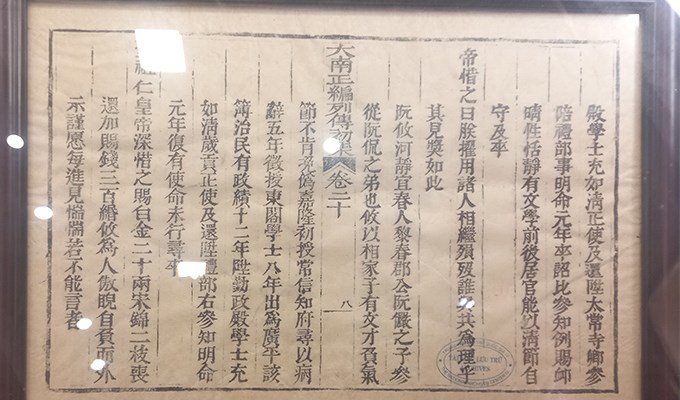 殿學士充如清正使及還陞太常寺卿參
陪禮部事明命元年卒詔比參知例賜卹
晴性恬靜有文學前後居官能以清節自
守及卒
帝惜之曰朕擢用諸人相繼殞歿誰與共為理乎
其見獎如此
阮攸河靜宜春人黎春郡公阮儼之子參
從阮侃之弟也攸以相家子有文才負氣
大南正編列傳初集 卷二十 八
節不肯偽嘉隆初授常信知府尋以病
辭五年徵授東閣學士八年出為廣平該
簿治民有政績十二年陞勤政殿學士充
如清歲貢正使及還陞禮部右參知明命
元年復有使命未行尋卒
祖仁皇帝深惜之賜白金二十兩宋錦二枝喪
還加賜錢三百緡攸為人傲睨自負而外
示謹愿每進見惴惴若不能言者